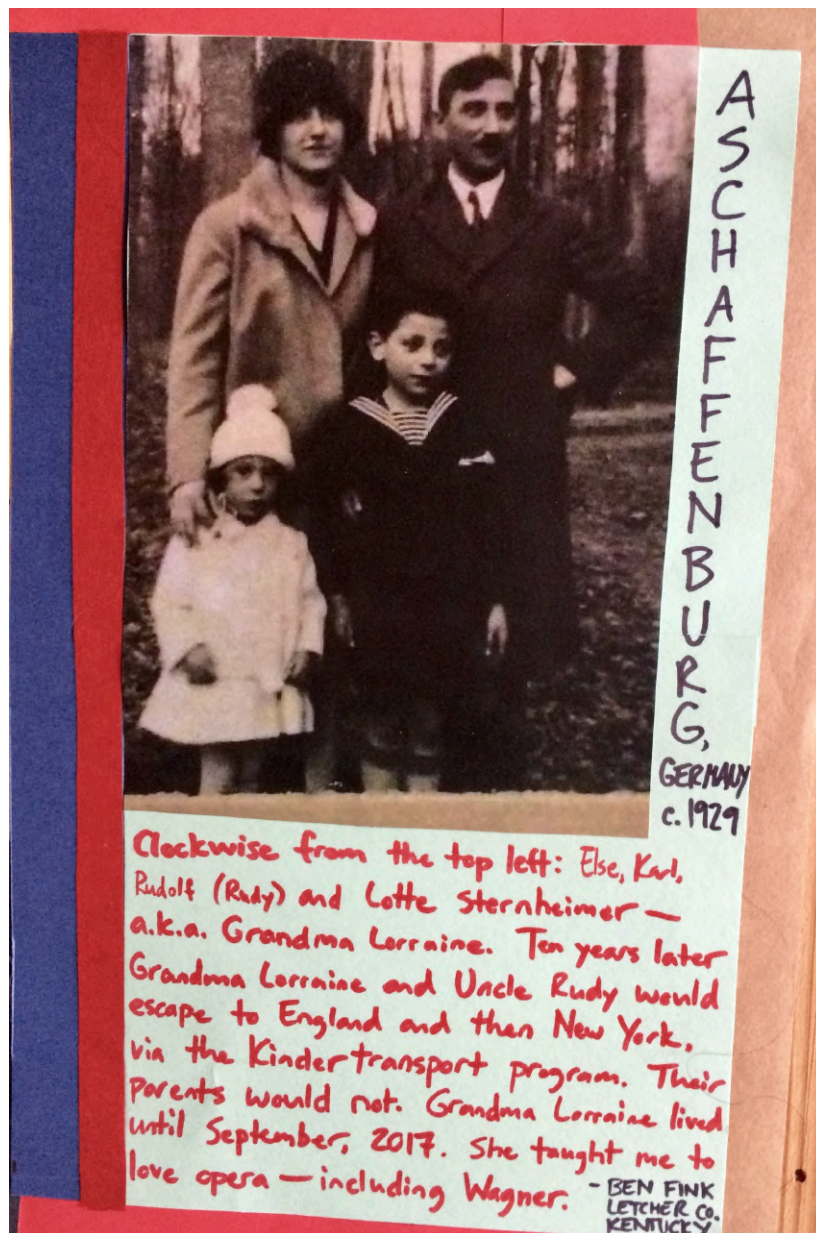 ASCHAFFENBURG,
GERMANY
c. 1929
Clockwise from the top left: Else, Karl,
Rudolf (Rudy) and Lotte Sternheimer —
a.k.a. Grandma Lorraine. Ten years later
Grandma Lorraine and Uncle Rudy would
escape to England and then New York,
via the Kindertransport program. Their
parents would not. Grandma Lorraine lived
until September, 2017. She taught me to
love opera — including Wagner.
- BEN FINK
LETCHER CO.
KENTUCKY